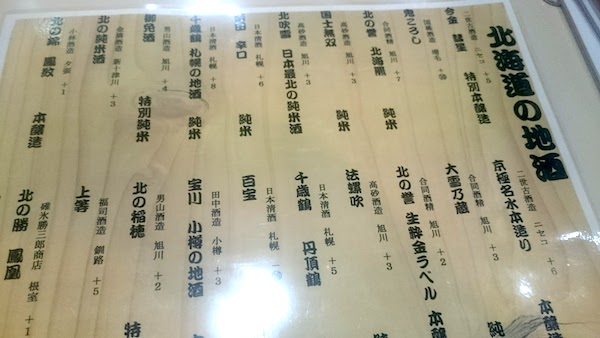 北海道の地酒
今金 彗星 特別本醸造
二世古酒造 ニセコ +5
鬼ころし
国稀酒造 増毛
北の誉 北海熊 純米
合同酒精 旭川 +7
国士無双 純米
高砂酒造 旭川 +3
北吹雪 日本最北の純米酒
高砂酒造 旭川 +3
辛口 純米
日本清酒 札幌 +6
千歳鶴 札幌の地酒 純米
日本清酒 札幌 +8
御免酒 特別純米
男山酒造 旭川 +4
北の純米酒
金滴酒造 新十津川 +3
北の錦 本醸造
小林酒造 夕張 +1
京極名水本造り 本醸造
二世古酒造 ニセコ +6
大雪乃蔵 純
合同酒精 旭川 +3
北の誉 生粋金ラベル 本醸
合同酒精 旭川 +2
法螺吹 純
高砂酒造 旭川 +3
千歳鶴 丹頂鶴
日本清酒 札幌 +5
百宝
日本清酒 札幌
宝川 小樽の地酒
田中酒造 小樽 +3
北の稲穂 特
男山酒造 旭川 +2
上等
福司酒造 釧路 +5
北の勝 鳳凰
碓氷勝三郎商店 根室 +1